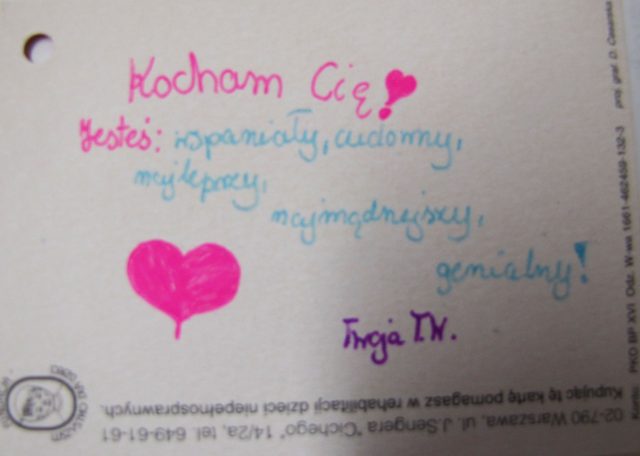 Kocham Cię!
Jesteś: wspaniały, cudowny,
najlepszy,
najmądrzejszy,
genialny!
Twoja T.W.
Kupując tę kartę pomagasz w rehabilitacji dzieci niepełnosprawnych.
02-790 Warszawa, ul. J.Sengera "Cichego" 14/2a, tel. 649-61-61
PKO BP XVI Odz. W-wa 1661-462459-132-3 proj. graf. D.